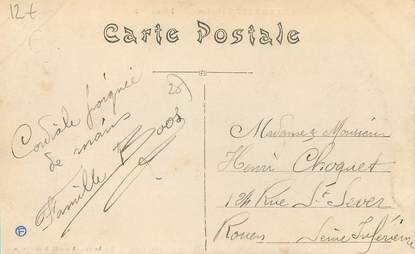 12 €
Carte Postale
20
Cordiale poignée
de mains
Famille Boos
Madame & Monsieur
Henri Choquet
124 Rue St Sever
Rouen Seine Inférieure